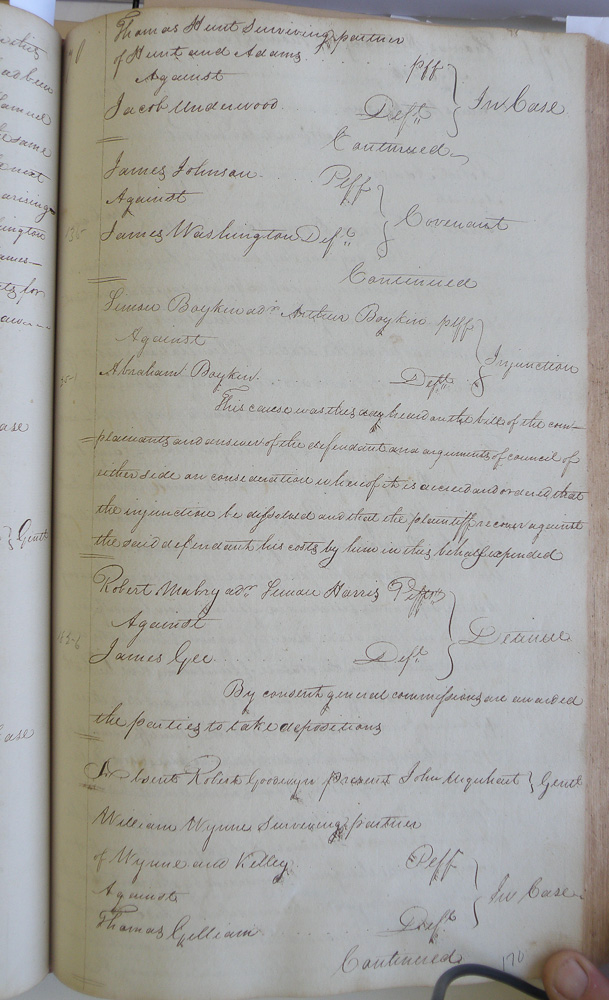 Thomas Hunt Surviving partner
of Hunt and Adams plff
Against } In Case
Jacob Underwood Deft
Continued
James Johnson Plff
Against } Covenant
James Washington Deft
Continued
Simon Boykin adr Arthur Boykin plff
Against } Injunction
Abraham Boykin Deft
This cause was this day heard on the bill of the com-
plainants and answer of the defendant and arguments of council of
either side on consideration whereof it is decreed and ordered that
the injunction be dissolved and that the plaintiff recover against
the said defendant his costs by him in this behalf expended
Robert Mabry adr Simon Harris Plff
Against } Detinue
James Gee Deft
By consent general commissions are awarded
the parties to take depositions
Absent Robert Goodwyn present John Urquhart } Gent
William Wynne Surviving partner
of Wynne and Kelley Plff
Against } In Case
Thomas Gilliam Deft
Continued
170